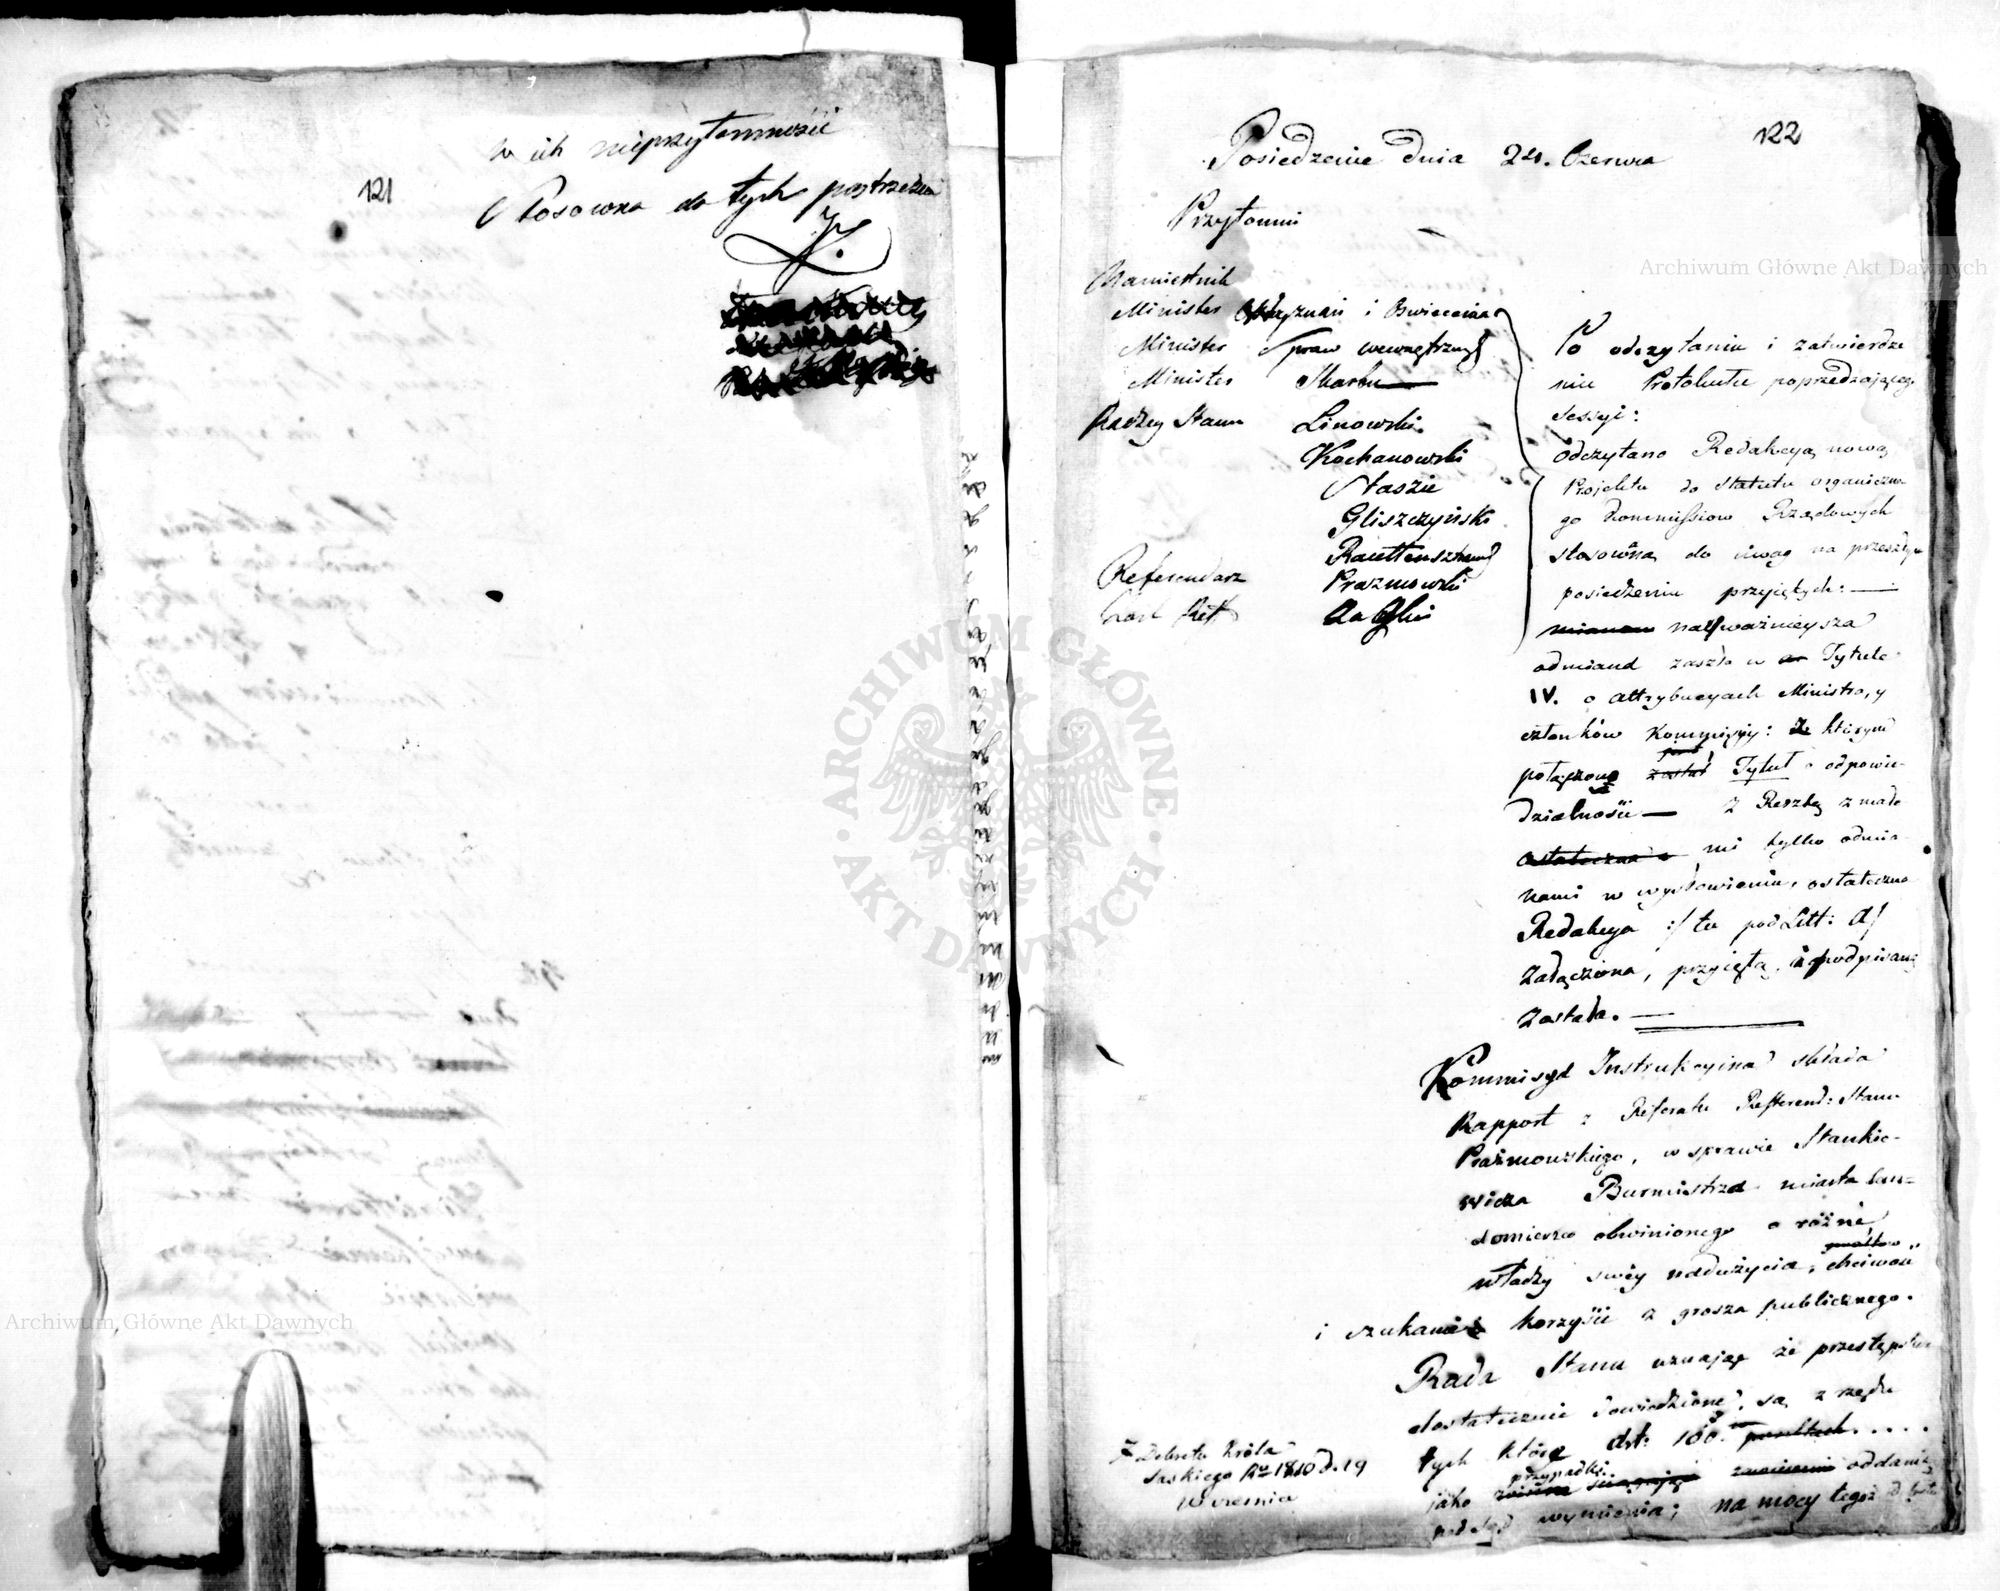 w ich nieprzytomności
121
Stosowna do tych postrzeżeń
122
Posiedzenie dnia 24. Czerwca
Przytomni
Namiestnik
Minister Wyznań i Oświecenia
Minister Spraw wewnętrznych
Minister Skarbu
Radzcy Stanu Linowski.
Kochanowski
Staszic
Gliszczyński
Rautenstrauch
Referendarz Prażmowski
Po odczytaniu i zatwierdze
niu Protokułu poprzedzającego
Sessyi:
odczytano Redakcyą nową
Projektu do Statutu organiczne
go Kommissiow Rządowych
stosowną do uwag na przeszłym
posiedzeniu przyjętych: —
naÿważnieysza
odmiana zaszła w Tytule
IV. o attrybucyach Ministra, y
członków Kommissyy: z którym
połączono Tytuł o odpowie-
dzialności — z Resztą z małe
mi tylko odmia-
nami w wysłowieniu, ostateczna
Redakcya :/ tu pod Litt: A/
załączona, przyięta, i podpisaną
została. —
Kommisya Instrukcyina składa
Rapport z Referatu Refferend: Stanu
Prażmowskiego, w sprawie Stankie-
wicza Burmistrza miasta San-
domierza obwinionego o różne
władzy swéy nadużycia, chciwość
i szukanie korzyści z grosza publicznego.
Rada Stanu uznając że przestępstwa
dostatecznie dowiedzione, są z rzędu
tych które art: 160.
jako przypadki oddania
pod Sąd wymienia; na mocy tegoż
Dekretu Króla
Saskiego Ru 1810 d. 19
Września
Archiwum Główne Akt Dawnych
Archiwum Główne Akt Dawnych
ARCHIWUM GŁÓWNE
AKT DAWNYCH